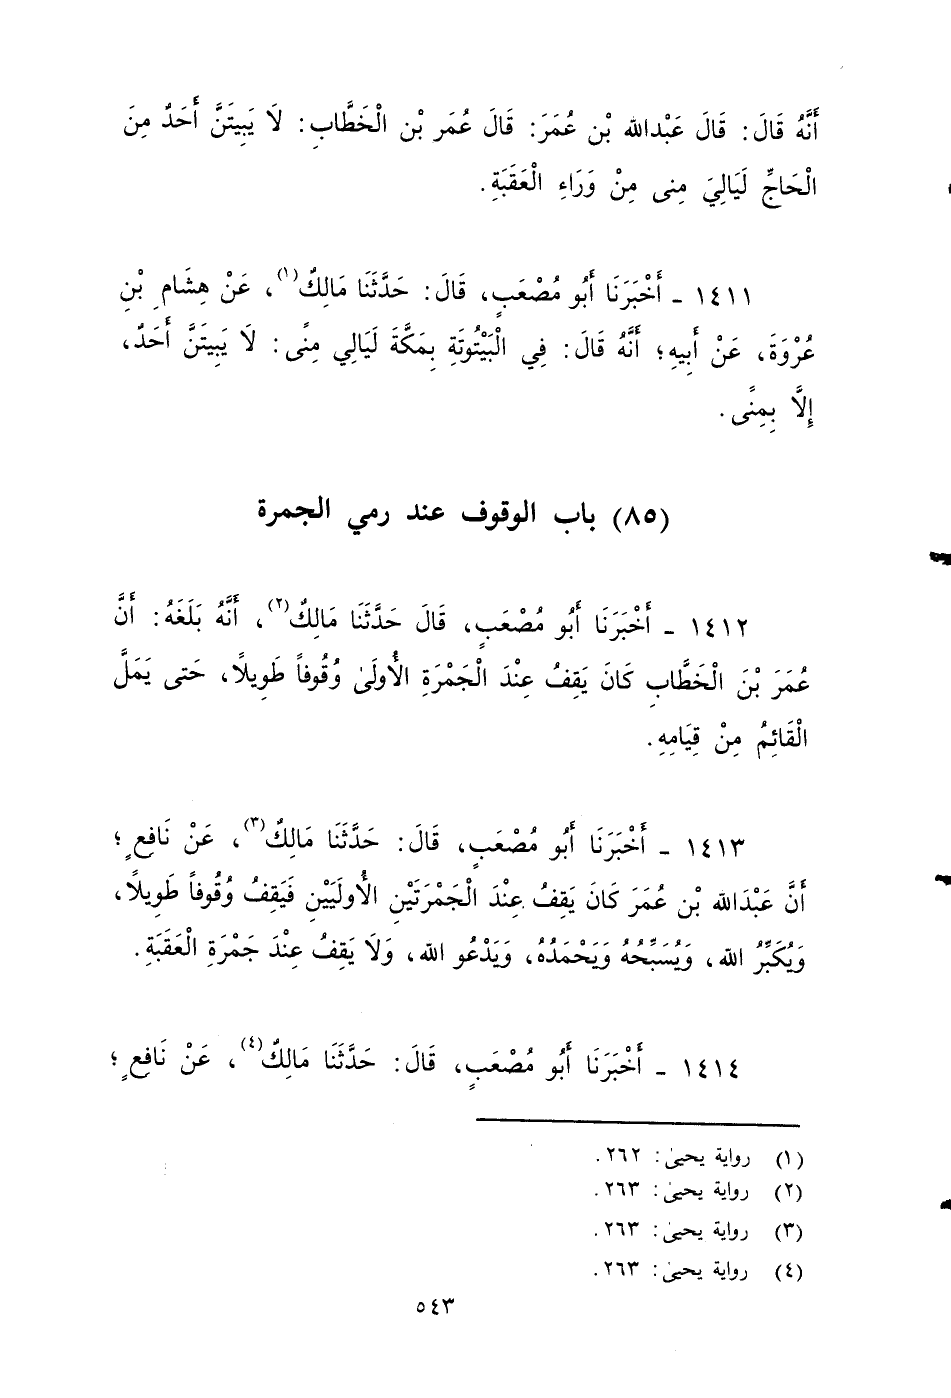 أَنَّهُ قَالَ: قَالَ عَبْدالله بْن عُمَرَ: قَالَ عُمَر بْن الْخَطَّابِ: لَا يَبِيتَنَّ أَحَدٌ مِنَ
الْحَاجِّ لَيَالِيَ مِنى مِنْ وَرَاءِ الْعَقَبَةِ.
١٤١١ - أَخْبَرَنَا أَبُو مُصْعَبٍ، قَالَ: حَدَّثَنَا مَالِكٌ(١)، عَنْ هِشَامِ بْنِ
عُرْوَةَ، عَنْ أَبِيهِ؛ أَنَّهُ قَالَ: فِي الْبَيْتُوتَةِ بِمَكَّةَ لَيَالِي مِنًى: لَا يَبِيتَنَّ أَحَدٌ،
إِلَّا بِمِنًى.
(٨٥) باب الوقوف عند رمي الجمرة
١٤١٢ - أَخْبَرَنَا أَبُو مُصْعَبٍ، قَالَ حَدَّثَنَا مَالِكٌ(٢)، أَنَّهُ بَلَغَهُ: أَنَّ
عُمَرَ بْنَ الْخَطَّابِ كَانَ يَقِفُ عِنْدَ الْجَمْرَةِ الأُولَىٰ وُقُوفاً طَوِيلًا، حَتى يَمَلَّ
الْقَائِمُ مِنْ قِيَامِهِ.
١٤١٣ - أَخْبَرَنَا أَبُو مُصْعَبٍ، قَالَ: حَدَّثَنَا مَالِكٌ(٣)، عَنْ نَافِعٍ؛
أَنَّ عَبْدَالله بْن عُمَرَ كَانَ يَقِفُ عِنْدَ الْجَمْرَتَيْنِ الأُولَيَيْنِ فَيَقِفُ وُقُوفاً طَوِيلًا،
وَيُكَبِّرُ الله، وَيُسَبِّحُهُ وَيَحْمَدُهُ، وَيَدْعُو الله، وَلَا يَقِفُ عِنْدَ جَمْرَةِ الْعَقَبَةِ.
١٤١٤ - أَخْبَرَنَا أَبُو مُصْعَبٍ، قَالَ: حَدَّثَنَا مَالِكٌ(٤)، عَنْ نَافِعٍ؛
(١) رواية يحيىٰ: ٢٦٢.
(٢) رواية يحيىٰ: ٢٦٣.
(٣) رواية يحيىٰ: ٢٦٣.
(٤) رواية يحيىٰ: ٢٦٣.
٥٤٣